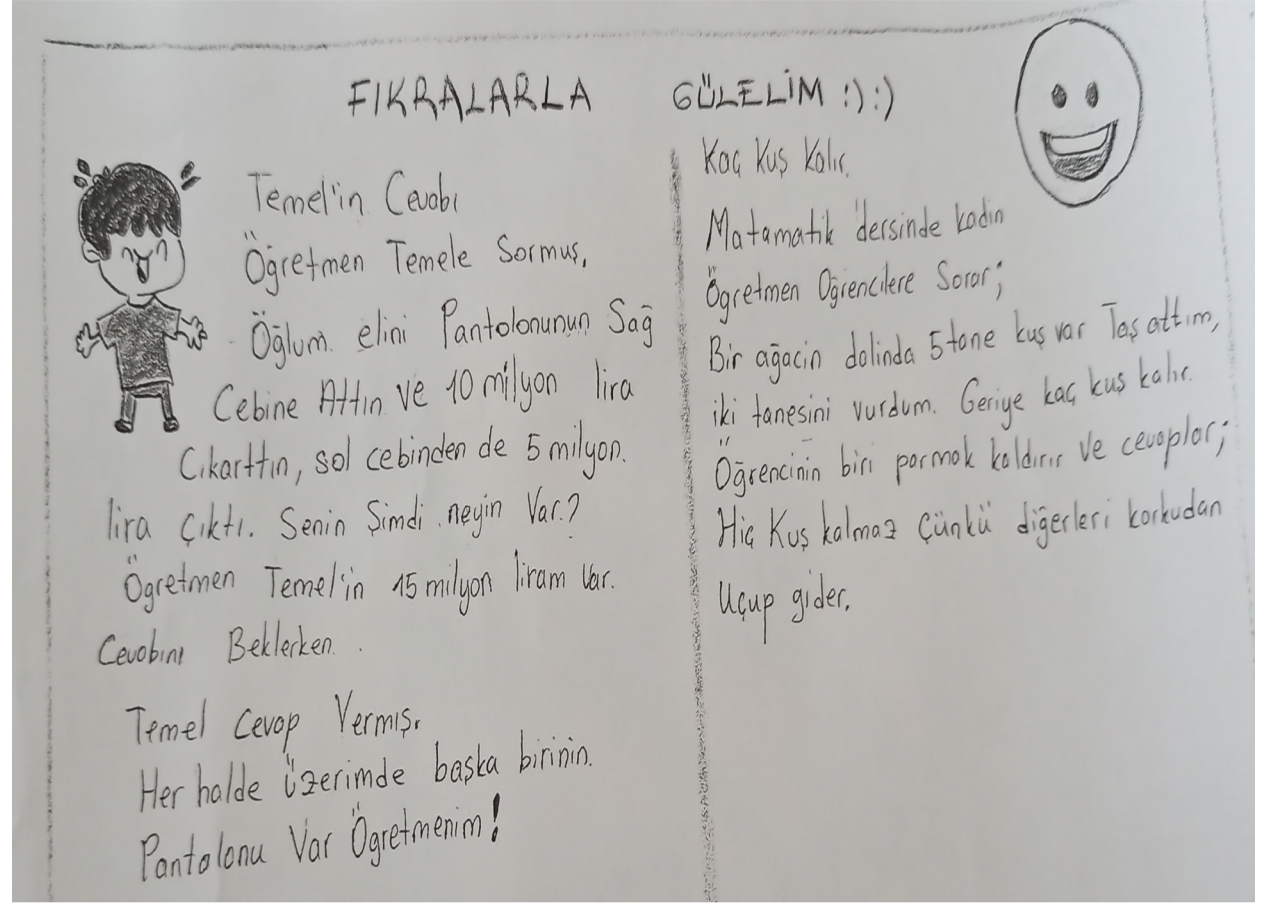 FIKRALARLA GÜLELİM :) :)
Temel'in Cevabı
Öğretmen Temele Sormuş,
Öğlum elini Pantolonunun Sağ
Cebine Attın ve 10 milyon lira
Cıkarttın, sol cebinden de 5 milyon.
lira çıktı. Senin Şimdi neyin Var.?
Ögretmen Temel'in 15 milyon liram Var.
Cevabını Beklerken.
Temel Cevap Vermiş.
Her halde üzerimde başka birinin.
Pantolonu Var Ögretmenim!
Kaç Kuş Kalır.
Matamatik dersinde kadin
Ögretmen Oğrencilere Sorar;
Bir ağacin dalinda 5 tane kuş var Taş attım,
iki tanesini vurdum. Geriye kaç kuş kalır.
Öğrencinin biri parmak kaldırır ve cevaplar;
Hiç Kuş kalmaz çünkü diğerleri korkudan
Uçup gider.